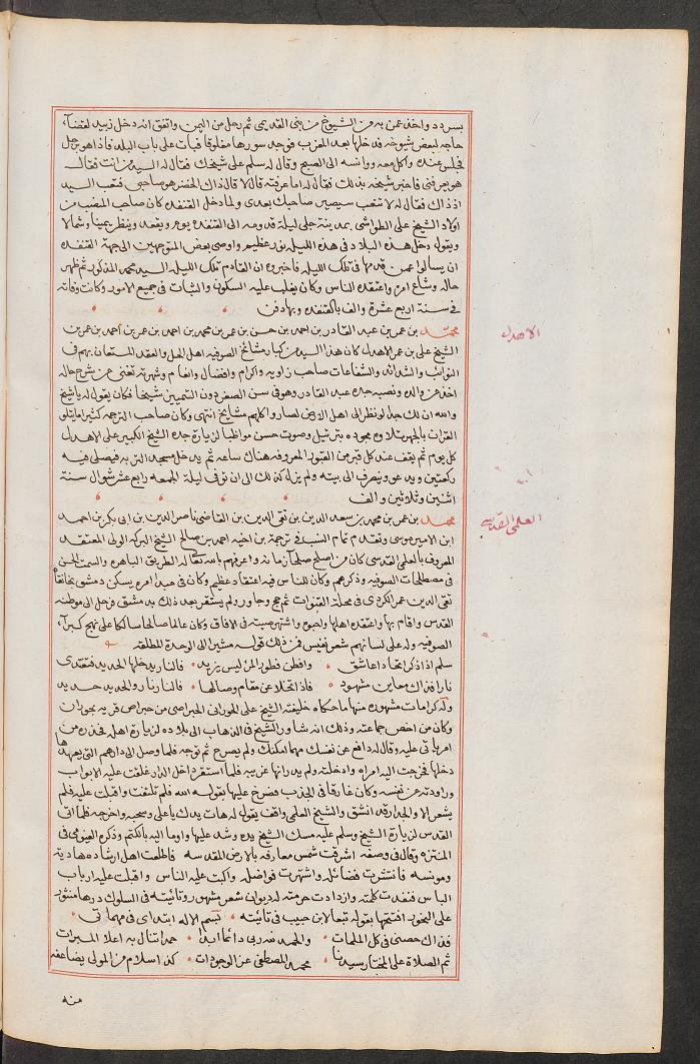 بسردد واخذ عمن به من الشيوخ من بنى القديمى ثم رحل من اليمن واتفق انه دخل زبيد لقضآء
حاجه لبعض شيوخه فدخلها بعد المغرب فوجد سورها مغلوقا فبات على باب البلد فاذا هو برجل
فجلس عنده واكل معه ووانسه الى الصبح وقال له سلم على شيخك فقال له السيد من انت فقال
هو يعرفنى فاخبر شيخه بذلك فقال له اما عرفته قال لا قال ذاك الخضر هو صاحبى فتعب السيد
اذ ذاك فقال له لا تتعب سيصير صاحبك بعدى ولما دخل القنفده كان صاحب المنصب من
اولاد الشيخ على الطواشى بمدينة حلى ليلة قدومه الى القنفده يقوم ويقعد وينظر يمينا وشمالا
ويقول دخل هذه البلاد فى هذه الليله نور عظيم واوصى بعض المتوجهين الى جهة القنفده
ان يسالوا عمن قدمها فى تلك الليله فاخبروه ان القادم تلك الليله السيد محمد المذكور ثم ظهر
حاله وشاع امره واعتقده الناس وكان يغلب عليه السكون والثبات فى جميع الامور وكانت وفاته
فى سنة اربع عشرة والف بالقنفده وبها دفن
الاهدل
محمد بن عمر بن عبد القادر بن احمد بن حسن بن عمر بن محمد بن احمد بن عمر بن احمد بن عمر بن
الشيخ على بن عمر الاهدل كان هذا السيد من كبار مشائخ الصوفيه اهل الحل والعقد المستعان بهم فى
النوائب والشدائد والشفاعات صاحب زاويه واكرام وافضال وانعام وشهرته تغنى عن شرح حاله
اخذ عن والده ونصبه جده عبد القادر وهو فى سن الصغر دون التمييز شيخا فكان يقول له يا شيخ
والله ان لك جدا لو نظر الى اهل الارض لصاروا كلهم مشايخ انتهى وكان صاحب الترجمه كثيرا ما يتلو
القران بالجهر تلاوه مجوده بترتيل وصوت حسن مواظبا لزيارة جده الشيخ الكبير على الاهدل
كل يوم ثم يقف عند كل قبر من القبور المعروفه هناك ساعه ثم يدخل مسجد التربه فيصلى فيه
ركعتين ويدعو وينصرف الى بيته ولم يزل كذلك الى ان توفى ليلة الجمعه رابع عشر شوال سنة
اثنين وثلاثين والف
العلمى القدسى
محمد بن عمر بن محمد بن سعد الدين بن تقى الدين بن القاضى ناصر الدين بن ابى بكر بن احمد
ابن الامير موسى وتقدم تمام النسب فى ترجمة بن اخيه احمد بن صالح الشيخ البركه الولى المعتقد
المعروف بالعلمى القدسى كان من اصلح صلحآ زمانه واعرفهم بالله تعالى له الطريق الباهره والسمت الحسن
فى مصطلحات الصوفيه وذكرهم وكان للناس فيه اعتقاد عظيم وكان فى مبدا امره يسكن دمشق بخانقاه
تقى الدين عمر الكردى فى محلة القنوات ثم حج وجاور ولم يستقر بعد ذلك بدمشق فرحل الى موطنه
القدس واقام بها واعتقده اهلها ولصوه واشتهر صيته فى الافاق وكان عالما صالحا سالكا على نهج كبرآء
الصوفيه وله على لسانهم شعر نفيس فمن ذلك قوله مشيرا الى الوحدة المطلقه
سلم اذا ذكر اتحاد اعاشق وافطن فطور المرء ليس يزيد فالنار يدخلها الحديد فتغتدى
نارا فتراك معاين مشهود فاذا تخلا عن مقام وصالها فالنار نار والحديد حديد
وله كرامات مشهوره منها ما حكاه خليفته الشيخ على الحورانى الحبراصى من حبراص قريه بحوران
وكان من اخص جماعته وذلك انه شاور الشيخ فى الذهاب الى بلاده لزيارة اهله فحذره من
امر ياتى عليه وقال له دافع عن نفسك مهما امكنك ولم يصرح ثم توجه فلما وصل الى دارهم التى يعهدها
دخلها فخرجت اليه امراه وادخلته ولم يدر انها غريبه فلما استقر داخل الدار غلقت عليه الابواب
وراودته عن نفسه وكان غارقا فى الجذب فصرخ عليها بقوله الله فلم تلتفت واقبلت عليه فلم
يشعر الا والجدار قد انشق والشيخ العلمى واقف يقول له هات يدك يا على وسحبه واخرجه فلما اتى
القدس لزيارة الشيخ وسلم عليه مسك الشيخ يده وشد عليها واوما اليه بالكتم وذكره الغزى فى
المنتزه وقال فى وصفه اشرقت شمس معارفه بالارض المقدسه فاطلعت اهل ارشاده هاديته
ومونسه فانتشرت فضائله واشتهرت فواضله واكبت عليه الناس واقبلت عليه ارباب
الباس فنفدت كلمته وازدادت حرمته له ديوان شعر مشهور وتائيته فى السلوك درها منثور
على النحور افتتحها بقوله تبعا لابن حبيب فى تائيته بسم الاله ابتداى فى مهماتى
فذاك حصنى فى كل الملمات والحمد لله ربى دائما ابدا حمدا تنال به اعلا المبرات
ثم الصلاة على المختار سيدنا محمد المصطفى عن الوجودات كذا سلام من المولى يضاعفه
منه